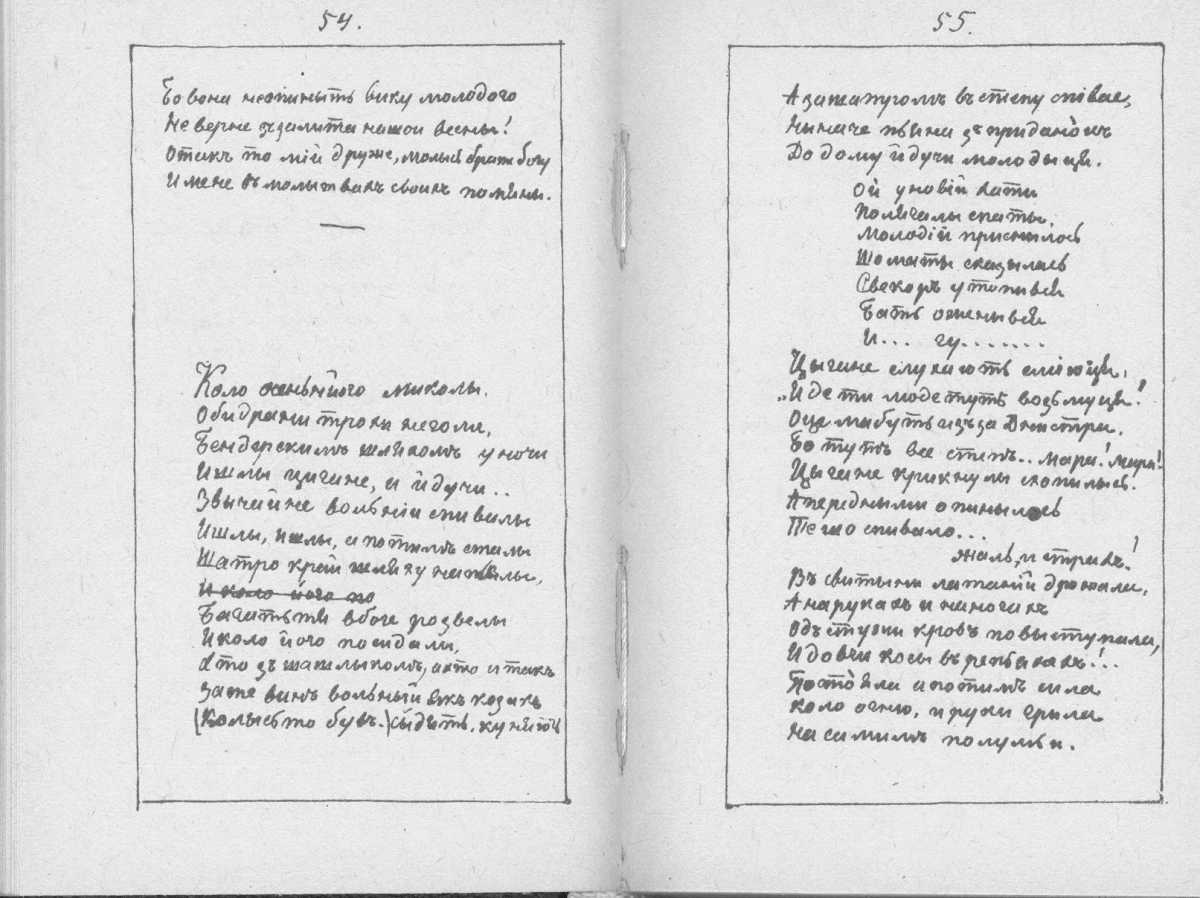 54.
Бо вона неспиныть вику молодого
Неверне зъзамита нашои весны!
Отакъ то мій друже, молысь братъ богу
И мене въ молытвахъ своихъ помъяны.
Коло осеньнёго миколы.
Обидрани трохы неголи,
Бендерскимъ шляхомъ уночи
Ишлы цыгане, а йдучи..
Звычайне вольніи спивалы
Ишлы, ишлы, а потимъ сталы
Шатро край шляху напъялы,
И коло його по
Багатьтя вбоге розвелы
И коло його посидалы,
Хто зъ шашлыкомъ, а хто и такъ
Зате винъ вольный якъ козакъ
(Колысьто бувъ.) сыдять, куняють
55.
А за шатромъ въ степу співае,
Ныначе пъяна зъ приданокъ
До дому йдучи молодыця.
Ой у новій хати
Полягалы спаты
Молодій приснылось
Шо маты сказылась
Свекоръ утопився
Бать оженывся
И... гу.......
Цыгане слухають сміюця,
„И де ти люде тутъ возьмуця!
Оце мабуть изъза Днистра,
Бо тутъ все степъ.. мара! мара!
Цыгане крикнулы схопылысь!
А передными опынылось
Те шо спивало...
Жаль, и страхъ!
Въ свитыни латаній дрожала,
А на рукахъ и на ногахъ
Одъ стужи кровъ повыступала,
И довги косы въ репъяхахъ!..
Постояла а потимъ сила
Коло огню, и руки грила
На самимъ полумъи.